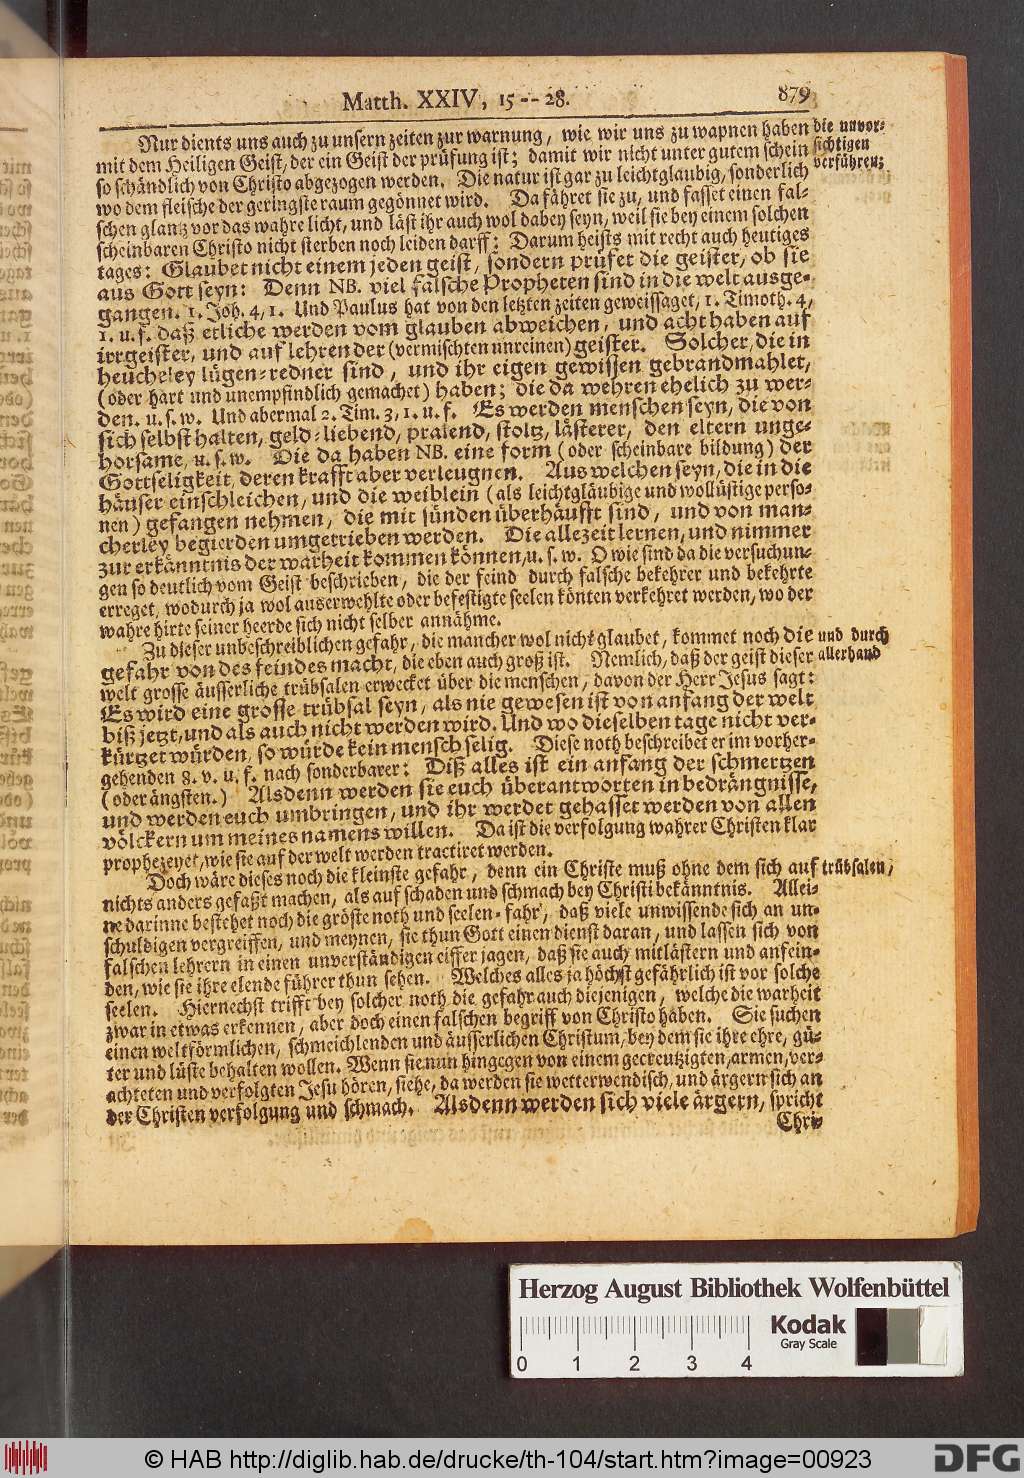 Matth. XXIV, 15--28. 879
Nur dients uns auch zu unsern zeiten zur warnung, wie wir uns zu wapnen haben
mit dem Heiligen Geist, der ein Geist der prüfung ist; damit wir nicht unter gutem schein
so schändlich von Christo abgezogen werden. Die natur ist gar zu leichtglaubig, sonderlich
wo dem fleische der geringste raum gegönnet wird. Da fähret sie zu, und fasset einen fal-
schen glantz vor das wahre licht, und läst ihr auch wol dabey seyn, weil sie bey einem solchen
scheinbaren Christo nicht sterben noch leiden darff: Darum heists mit recht auch heutiges
tages: Glaubet nicht einem jeden geist, sondern prüfet die geister, ob sie
aus Gott seyn: Denn NB. viel falsche Propheten sind in die welt ausge-
gangen. 1. Joh. 4, 1. Und Paulus hat von den letzten zeiten geweissaget, 1. Timoth. 4,
1. u. f. daß etliche werden vom glauben abweichen, und acht haben auf
irrgeister, und auf lehren der (vermischten unreinen) geister. Solcher, die in
heucheley lügen-redner sind, und ihr eigen gewissen gebrandmahlet,
(oder hart und unempfindlich gemachet) haben; die da wehren ehelich zu wer-
den. u. s. w. Und abermal 2. Tim. 3, 1. u. f. Es werden menschen seyn, die von
sich selbst halten, geld-liebend, pralend, stoltz, lästerer, den eltern unge-
horsame, u. s. w. Die da haben NB. eine form (oder scheinbare bildung) der
Gottseligkeit, deren krafft aber verleugnen. Aus welchen seyn, die in die
häuser einschleichen, und die weiblein (als leichtgläubige und wollüstige perso-
nen) gefangen nehmen, die mit sünden überhäufft sind, und von man-
cherley begierden umgetrieben werden. Die allezeit lernen, und nimmer
zur erkänntnis der warheit kommen können, u. s. w. O wie sind da die versuchun-
gen so deutlich vom Geist beschrieben, die der feind durch falsche bekehrer und bekehrte
erreget, wodurch ja wol auserwehlte oder befestigte seelen könten verkehret werden, wo der
wahre hirte seiner heerde sich nicht selber annähme.
Zu dieser unbeschreiblichen gefahr, die mancher wol nicht glaubet, kommet noch die
gefahr von des feindes macht, die eben auch groß ist. Nemlich, daß der geist dieser
welt grosse äusserliche trübsalen erwecket über die menschen, davon der Herr Jesus sagt:
Es wird eine grosse trübsal seyn, als nie gewesen ist von anfang der welt
biß jetzt, und als auch nicht werden wird. Und wo dieselben tage nicht ver-
kürtzet würden, so würde kein mensch selig. Diese noth beschreibet er im vorher-
gehenden 8. v. u. f. nach sonderbarer: Diß alles ist ein anfang der schmertzen
(oder ängsten.) Alsdenn werden sie euch überantworten in bedrängnisse,
und werden euch umbringen, und ihr werdet gehasset werden von allen
völckern um meines namens willen. Da ist die verfolgung wahrer Christen klar
prophezeyet, wie sie auf der welt werden tractiret werden.
Doch wäre dieses noch die kleinste gefahr, denn ein Christe muß ohne dem sich auf
nichts anders gefaßt machen, als auf schaden und schmach bey Christi bekänntnis. Allei-
ne darinne bestehet noch die gröste noth und seelen-fahr, daß viele unwissende sich an un-
schuldigen vergreiffen, und meynen, sie thun Gott einen dienst daran, und lassen sich von
falschen lehrern in einen unverständigen eiffer jagen, daß sie auch mitlästern und anfein-
den, wie sie ihre elende führer thun sehen. Welches alles ja höchst gefährlich ist vor solche
seelen. Hiernechst trifft bey solcher noth die gefahr auch diejenigen, welche die warheit
zwar in etwas erkennen, aber doch einen falschen begriff von Christo haben. Sie suchen
einen weltförmlichen, schmeichlenden und äusserlichen Christum, bey dem sie ihre ehre, gü-
ter und lüste behalten wollen. Wenn sie nun hingegen von einem gecreutzigten, armen, ver-
achteten und verfolgten Jesu hören, siehe, da werden sie wetterwendisch, und ärgern sich an
der Christen verfolgung und schmach. Alsdenn werden sich viele ärgern, spricht
Chri-
die unvor-
sichtigen
verführen;
und durch
allerhand
trübsalen,
Herzog August Bibliothek Wolfenbüttel
Kodak
Gray Scale
0 1 2 3 4
© HAB http://diglib.hab.de/drucke/th-104/start.htm?image=00923
DFG